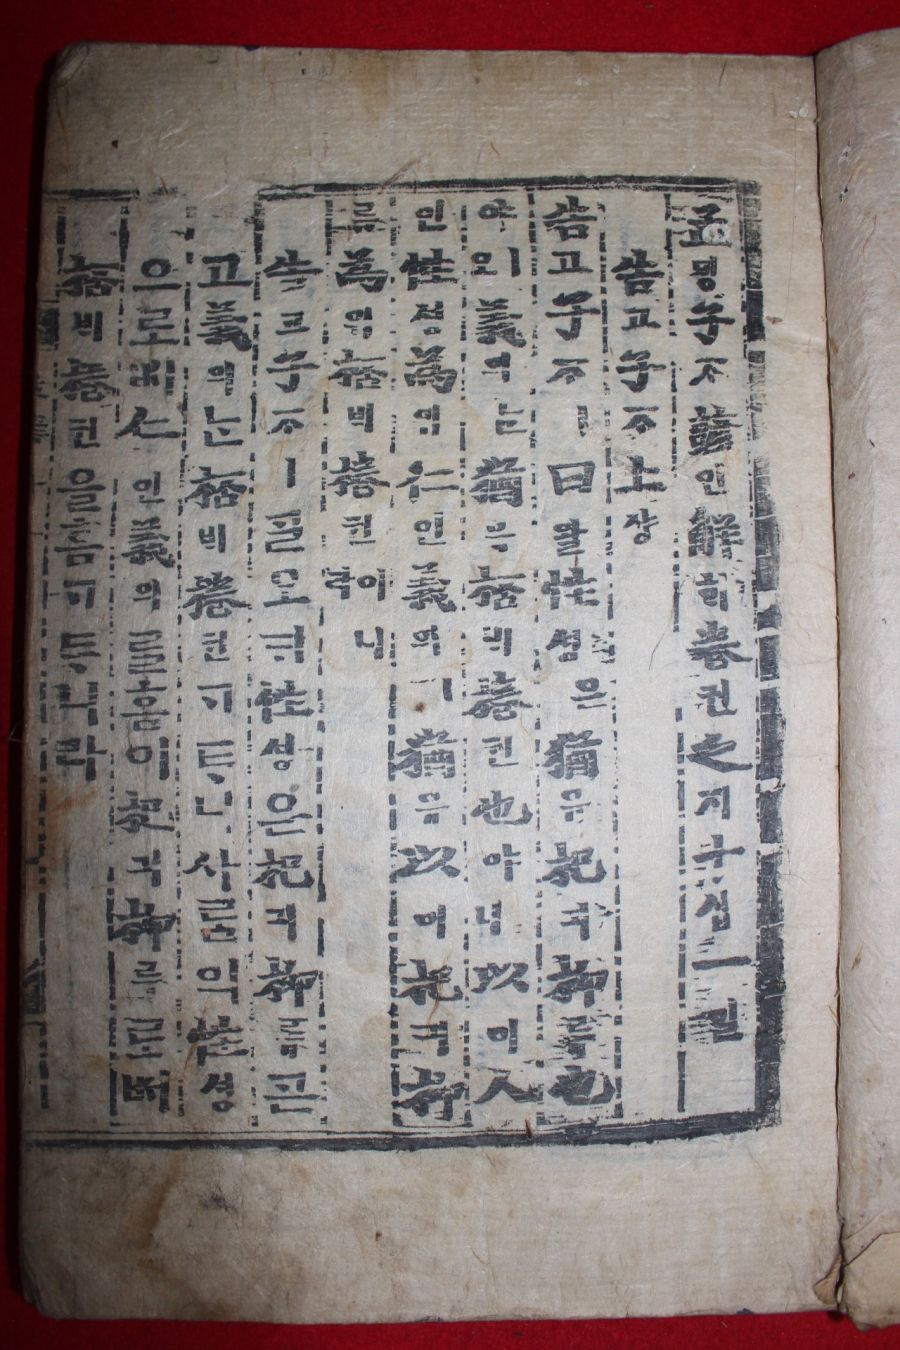 孟ᄆᆡᆼ子ᄌᆞ諺언解ᄒᆡ卷권之지十십一일
告고子ᄌᆞ上샹
告고子ᄌᆞㅣ曰왈性셩은猶유杞긔柳류也
야ㅣ오義의ᄂᆞᆫ猶유桮ᄇᆡ棬권也야ㅣ니以이人
인性셩爲위仁인義의ㅣ猶유以이杞긔柳
류爲위桮ᄇᆡ棬권이니라
告고子ᄌᆞㅣᄀᆞᆯ오ᄃᆡ性셩은杞긔柳류ᄀᆞᆮ
고義의ᄂᆞᆫ桮ᄇᆡ棬권ᄀᆞᄐᆞ니사ᄅᆞᆷ의性셩
으로ᄡᅥ仁인義의ᄅᆞᆯ홈이杞긔柳류로ᄡᅥ
桮ᄇᆡ棬권을홈ᄀᆞᄐᆞ니라